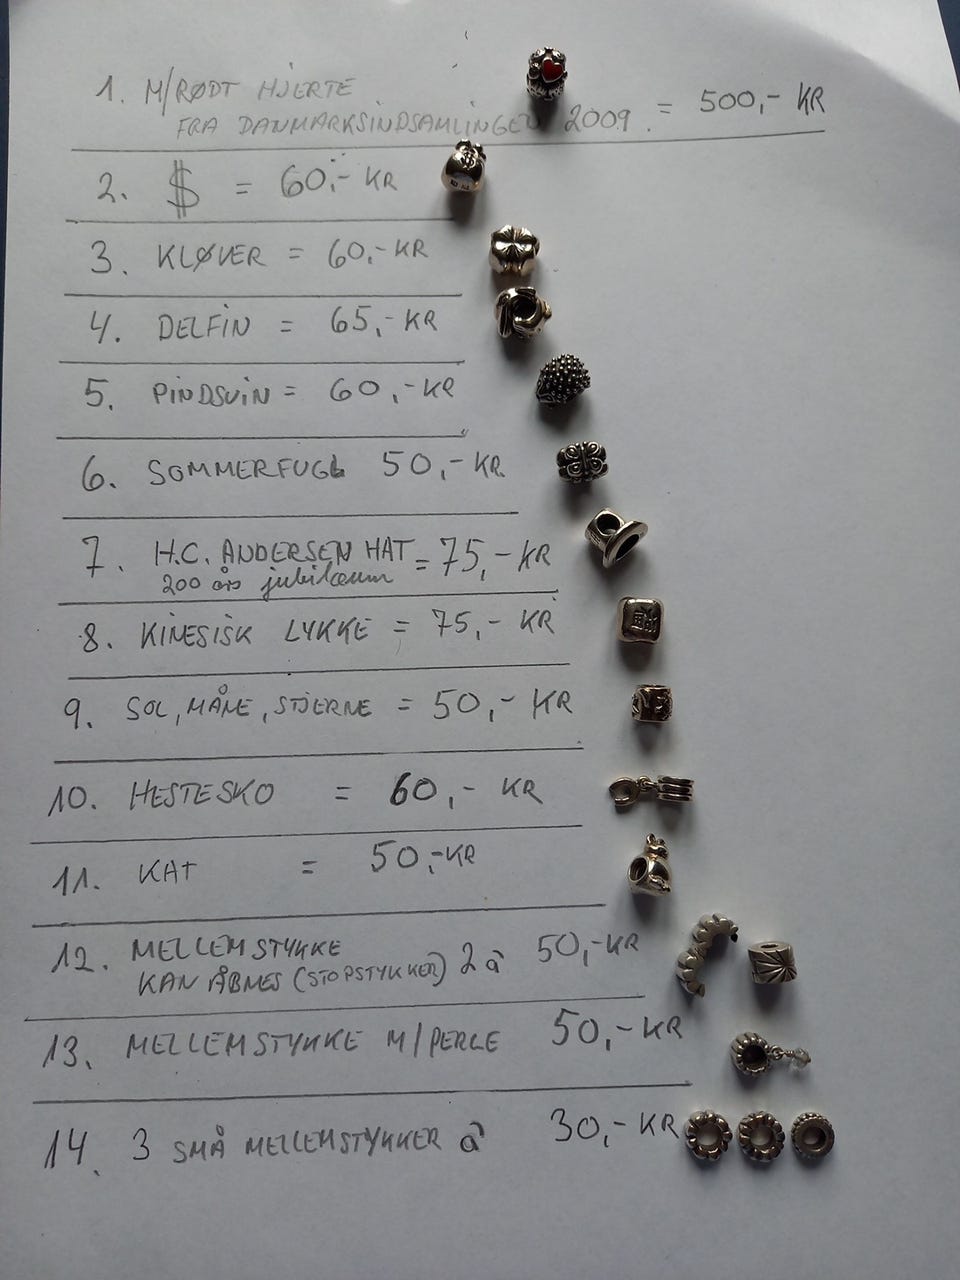 1. M/RØDT HJERTE
FRA DANMARKSINDSAMLINGEN 2009. = 500,- KR
2. $ = 60,- KR
3. KLØVER = 60,- KR
4. DELFIN = 65,- KR
5. PINDSVIN = 60,- KR
6. SOMMERFUGL 50,- KR.
7. H.C. ANDERSEN HAT = 75,- KR
200 års jubilæum
8. KINESISK LYKKE = 75,- KR
9. SOL, MÅNE, STJERNE = 50,- KR
10. HESTESKO = 60,- KR
11. KAT = 50,- KR
12. MELLEMSTYKKE
KAN ÅBNES (STOPSTYKKER) 2 à 50,- KR
13. MELLEMSTYKKE M/PERLE 50,- KR
14. 3 SMÅ MELLEMSTYKKER à 30,- KR